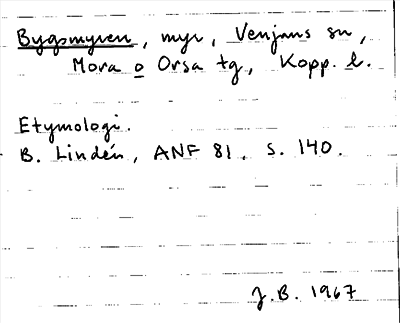 Bygomyren, myr, Venjans sn,
Mora o Orsa tg, Kopp. l.
Etymologi.
B. Lindén, ANF 81, s. 140.
J.B. 1967